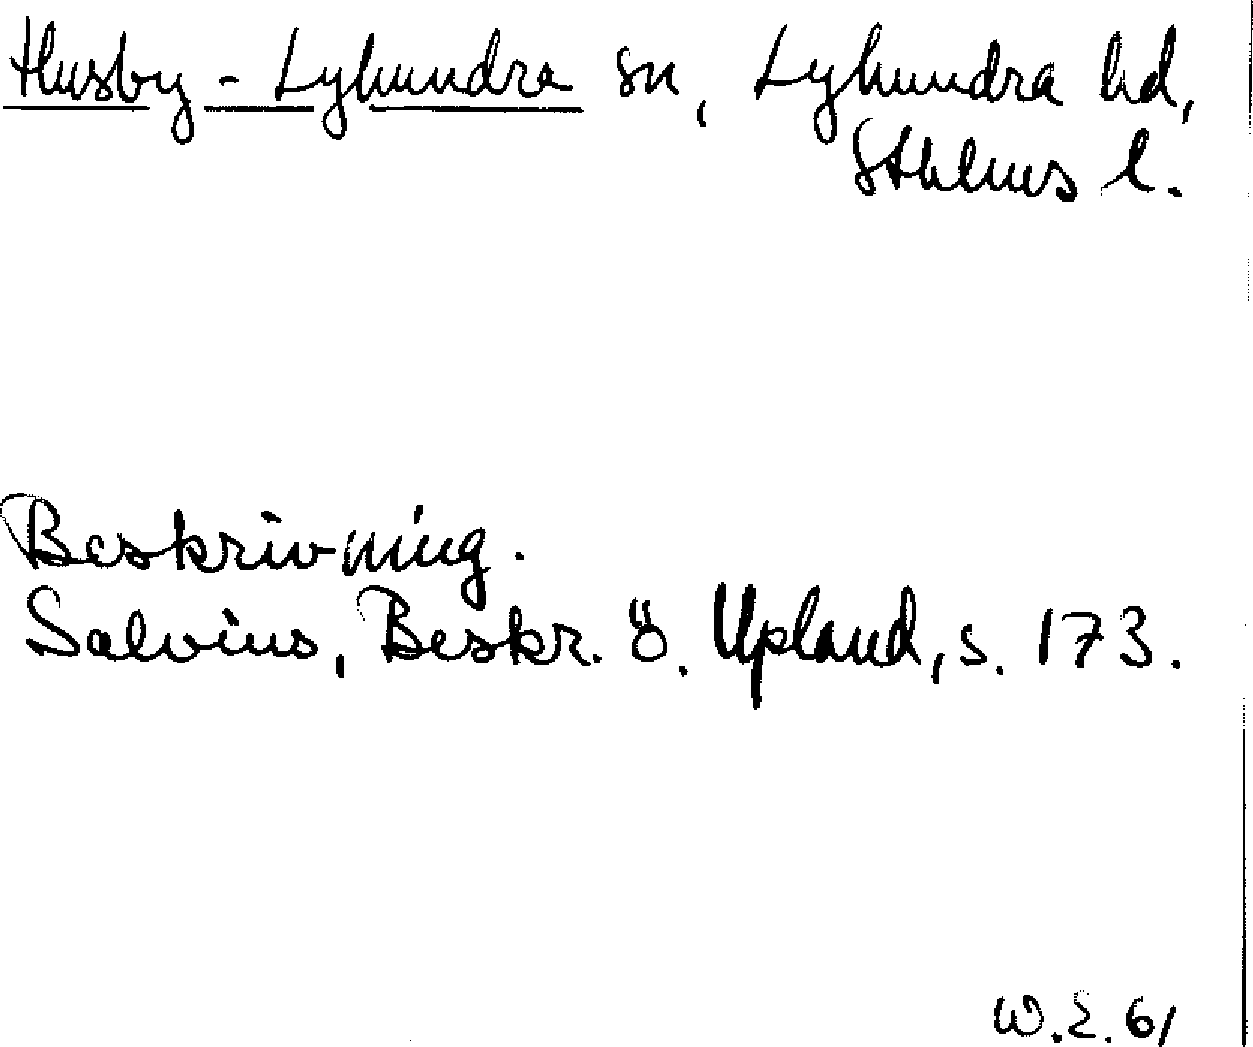 Husby-Lyhundra sn, Lyhundra hd,
Sthlms l.
Beskrivning.
Salvius, Beskr. ö. Upland, s. 173.
W.E. 61